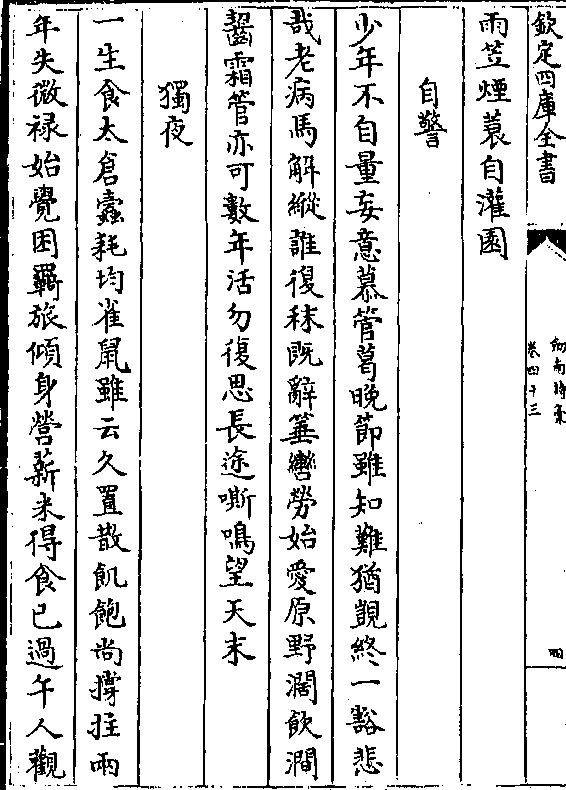 欽定四庫全書
劍南詩稾
卷四十三
四
雨笠煙蓑自灌園
自警
少年不自量妄意慕管葛晚節雖知難猶覬終一豁悲
哉老病馬解縱誰復秣既辭箠轡勞始愛原野濶飲澗
齧霜管亦可數年活勿復思長途嘶鳴望天末
獨夜
一生食太倉蠧耗均雀鼠雖云久置散飢飽尚撐拄兩
年失微禄始覺困羇旅傾身營薪米得食已過午人觀